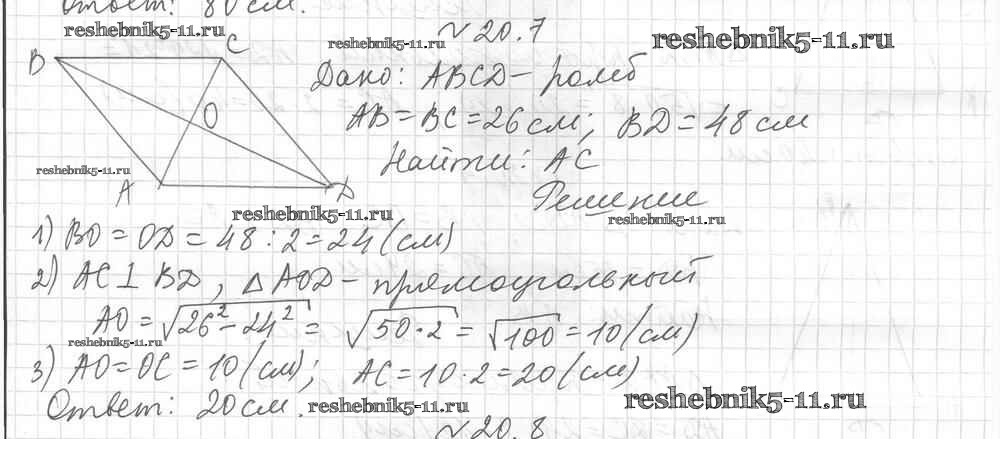 Ответ: 80 см.
reshebnik5-11.ru
№ 20.7
reshebnik5-11.ru
reshebnik5-11.ru
B
C
O
A
D
Дано: ABCD - ромб
AB = BC = 26 см; BD = 48 см
Найти: AC
reshebnik5-11.ru
Решение
reshebnik5-11.ru
reshebnik5-11.ru
1) BO = OD = 48 : 2 = 24 (см)
2) AC ⊥ BD, △ AOD - прямоугольный
AO = √26² - 24² = √50 · 2 = √100 = 10 (см)
reshebnik5-11.ru
3) AO = OC = 10 (см); AC = 10 · 2 = 20 (см)
Ответ: 20 см.
reshebnik5-11.ru
reshebnik5-11.ru
№ 20.8